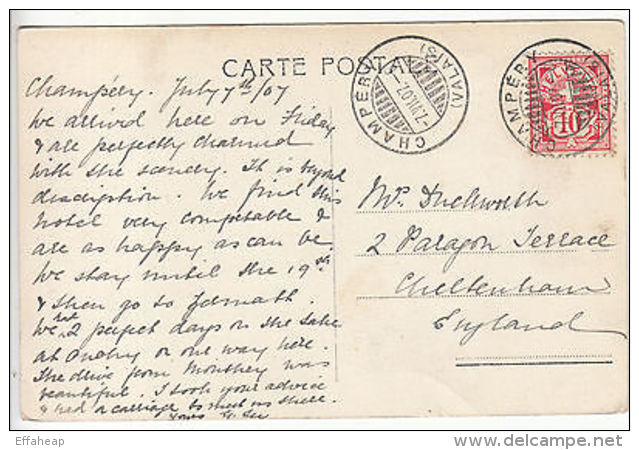 CARTE POSTALE
CHAMPÉRY (VALAIS)
7.VII.07
CHAMPÉRY (VALAIS)
10
Champéry. July 7th/07
We arrived here on Friday
& are perfectly charmed
with the scenery. It is beyond
discription. We find this
hotel very comfortable &
are as happy as can be
We stay until the 19th
& then go to Zermatt.
We had 2 perfect days on the Lake
at Ouchy on our way here.
The drive from Monthey was
beautiful. I took your advice
& had a carriage to meet us there.
Yours
Mr. Duckworth
2 Paragon Terrace
Cheltenham
England
Effaheap